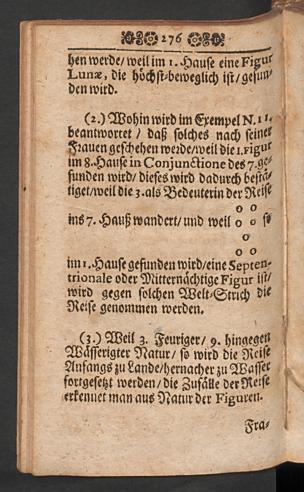 276
hen werde/ weil im 1. Hause eine Figur
Lunæ, die höchst-beweglich ist/ gefun-
den wird.
(2.) Wohin wird im Exempel N. 11.
beantwortet/ daß solches nach seiner
Frauen geschehen werde/ weil die 1. Figur
im 8. Hause in Conjunctione des 7. ge-
funden wird/ dieses wird dadurch bestä-
tiget/ weil die 3. als Bedeuterin der Reise
o o
ins 7. Hauß wandert/ und weil o o so
o
o o
im 1. Hause gefunden wird/ eine Septen-
trionale oder Mitternächtige Figur ist/
wird gegen solchen Welt-Strich die
Reise genommen werden.
(3.) Weil 3. Feuriger/ 9. hingegen
Wässerigter Natur/ so wird die Reise
Anfangs zu Lande/ hernacher zu Wasser
fortgesetzt werden/ die Zufälle der Reise
erkennet man aus Natur der Figuren.
Fra-